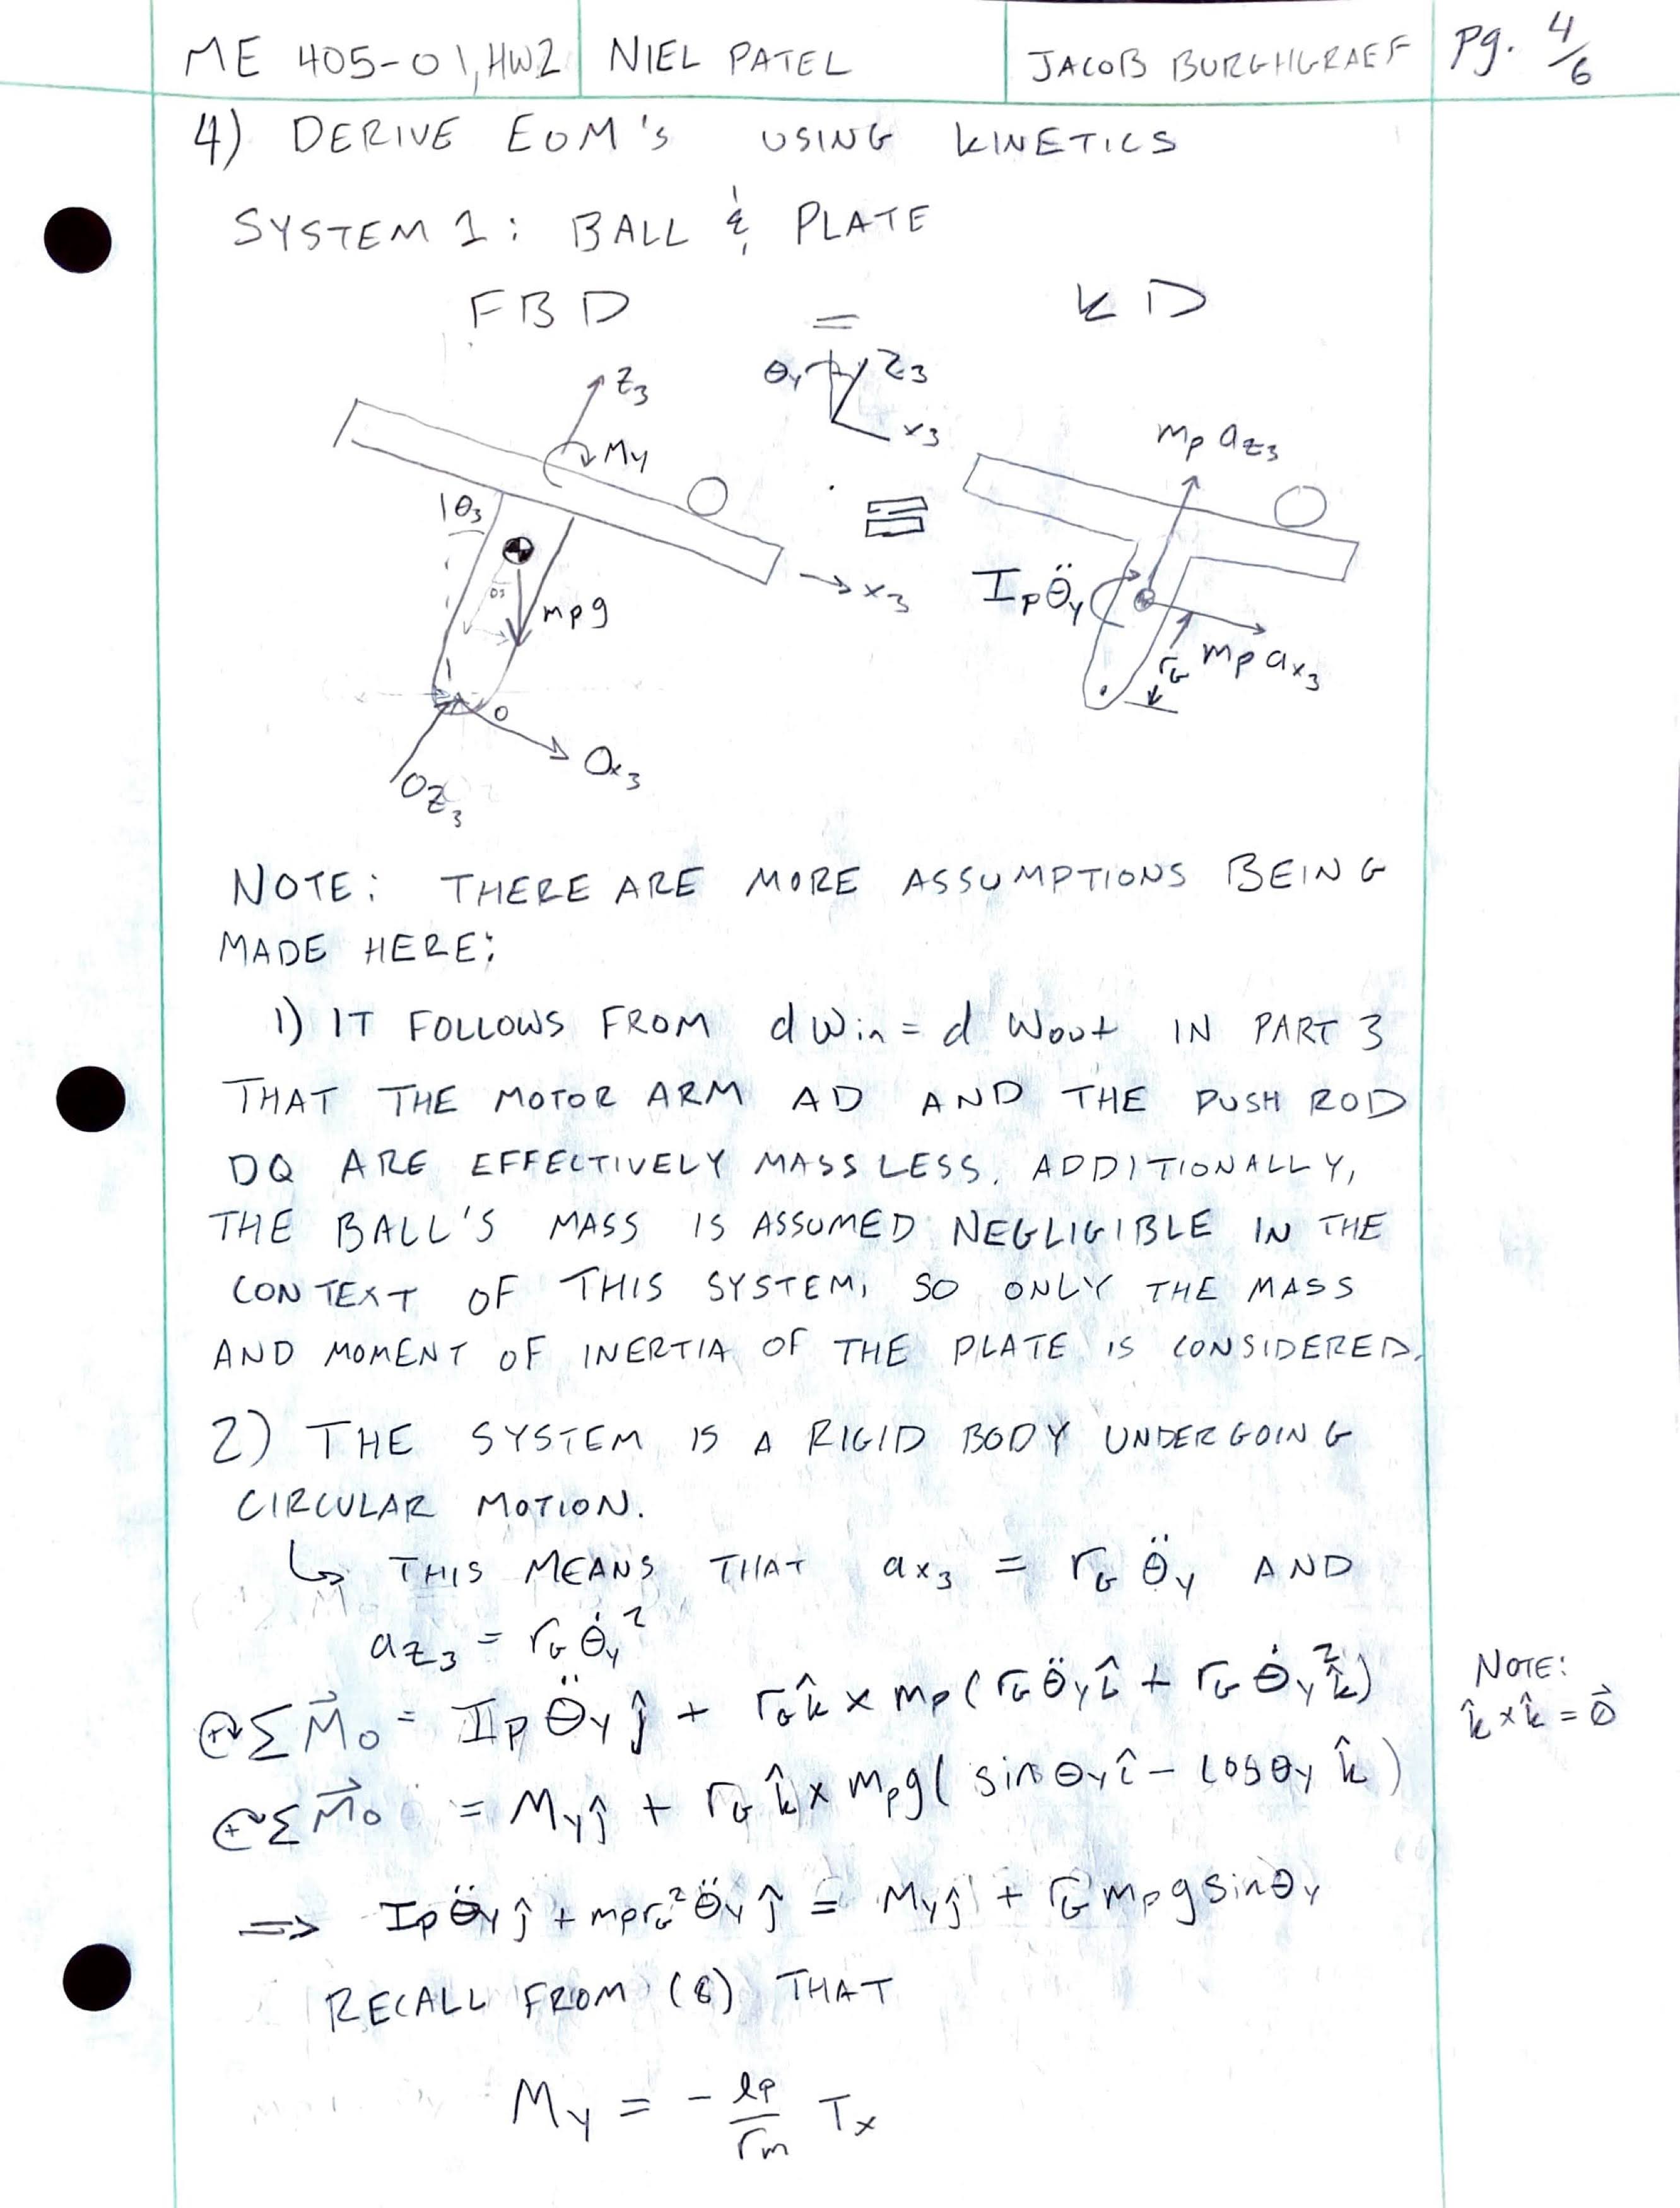 ME 405-01, HW2 NIEL PATEL JACOB BURGHGRAEF pg. 4/6
4) DERIVE EOM'S USING KINETICS
SYSTEM 1: BALL & PLATE
FBD = KD
z₃ My θ₃ mpg x₃ O Ox₃ Oz₃
θy z₃ x₃
mp az₃ Ip θ̈y rG mp ax₃
NOTE: THERE ARE MORE ASSUMPTIONS BEING
MADE HERE:
1) IT FOLLOWS FROM dWin = dWout IN PART 3
THAT THE MOTOR ARM AD AND THE PUSH ROD
DQ ARE EFFECTIVELY MASSLESS. ADDITIONALLY,
THE BALL'S MASS IS ASSUMED NEGLIGIBLE IN THE
CONTEXT OF THIS SYSTEM, SO ONLY THE MASS
AND MOMENT OF INERTIA OF THE PLATE IS CONSIDERED.
2) THE SYSTEM IS A RIGID BODY UNDERGOING
CIRCULAR MOTION.
↳ THIS MEANS THAT ax₃ = rG θ̈y AND
az₃ = rG θ̇y²
↷+ ΣM⃗o = Ip θ̈y ĵ + rG k̂ × mp(rG θ̈y î + rG θ̇y² k̂)
NOTE:
k̂ × k̂ = 0⃗
↷+ ΣM⃗o = My ĵ + rG k̂ × mpg(sinθy î - cosθy k̂)
⇒ Ip θ̈y ĵ + mp rG² θ̈y ĵ = My ĵ + rG mpg sinθy
RECALL FROM (8) THAT
My = - lp/rm Tx